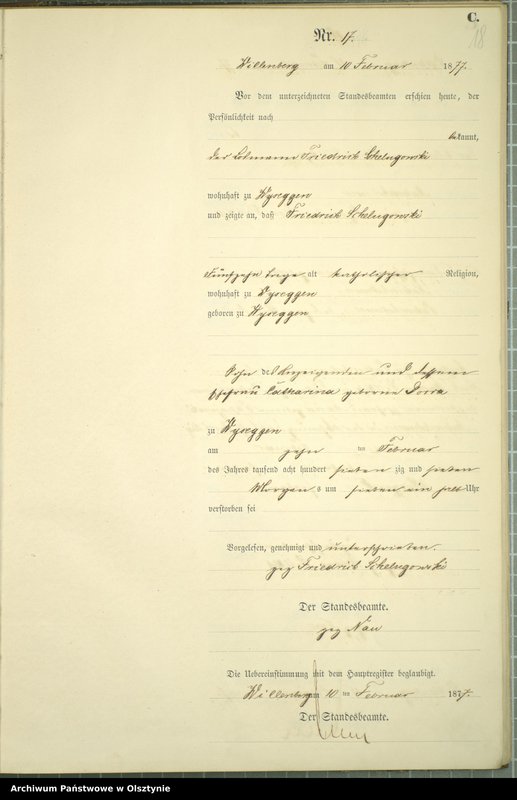 C.
18
Nr. 17.
Willenberg am 10 Februar 1877.
Vor dem unterzeichneten Standesbeamten erschien heute, der
Persönlichkeit nach
bekannt,
der Lohmann Friedrich Schelugowski
wohnhaft zu Wyseggen
und zeigte an, daß Friedrich Schelugowski
Fünfzehn Tage alt katholischer Religion,
wohnhaft zu Wyseggen
geboren zu Wyseggen
Sohn des Anzeigenden und dessen
Ehefrau Catharina geborne Dorra
zu Wyseggen
am zehn ten Februar
des Jahres tausend acht hundert sieben zig und sieben
Morgens um sieben ein halb Uhr
verstorben sei
Vorgelesen, genehmigt und unterschrieben.
gez Friedrich Schelugowski
Der Standesbeamte.
gez Nau
Die Uebereinstimmung mit dem Hauptregister beglaubigt.
Willenberg am 10 ten Februar 1877.
Der Standesbeamte.
Archiwum Państwowe w Olsztynie